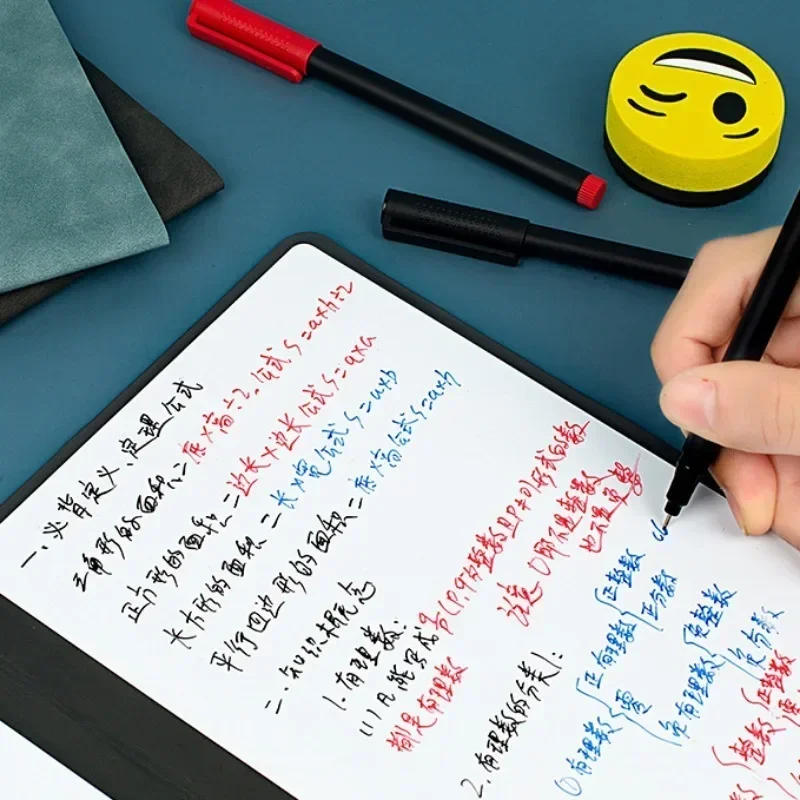 一、必背定义、定理公式
三角形的面积=底×高÷2。公式 S=a×h÷2
正方形的面积=边长×边长 公式 S=a×a
长方形的面积=长×宽 公式 S=a×b
平行四边形的面积=底×高 公式 S=a×h
二、知识概念
1.有理数:
(1)凡能写成 (p,q为整数且p≠0)形式的数
都是有理数
注意 0即不是整数
也不是
2.有理数的分类1:
①有理数
正有理数
正整数
正分数
零
负有理数
负整数
负分数
整数
正整数
零